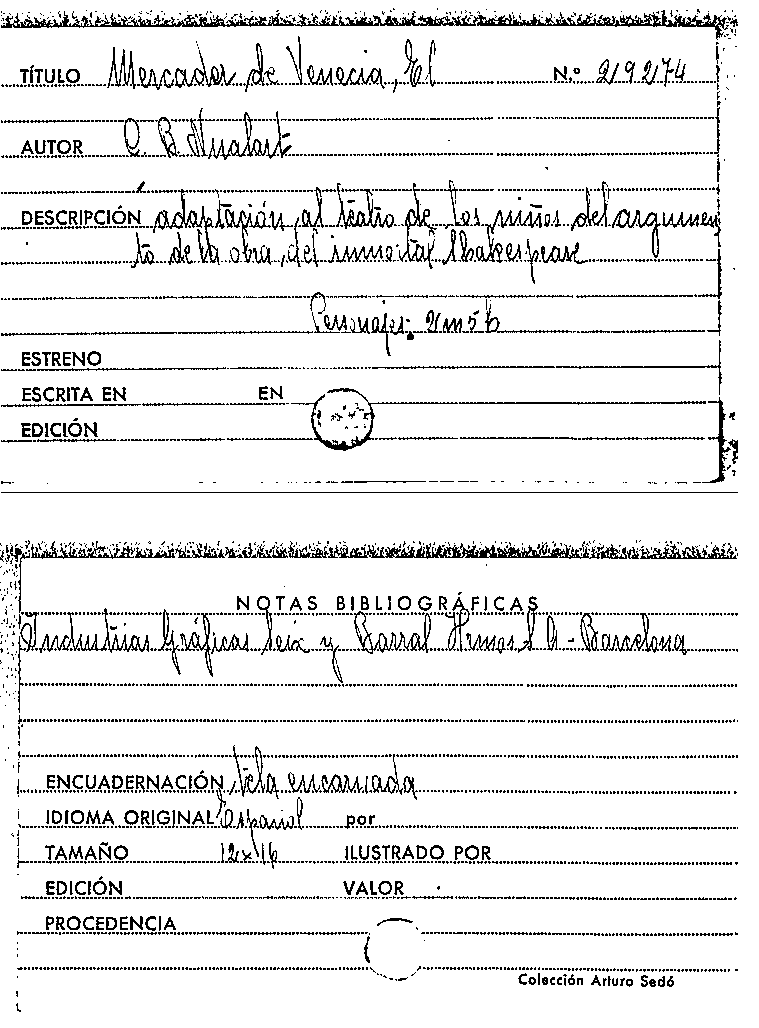 TÍTULO Mercader de Venecia, El N.º 219274
AUTOR C. B. Nualart
DESCRIPCIÓN adaptación al teatro de los niños del argumen
to de la obra, del inmortal Shakespeare
Personajes: 21m 5h
ESTRENO
ESCRITA EN EN
EDICIÓN
NOTAS BIBLIOGRÁFICAS
Industrias Gráficas Seix y Barral Hrnos S A - Barcelona
ENCUADERNACIÓN tela encarnada
IDIOMA ORIGINAL Español por
TAMAÑO 12x16 ILUSTRADO POR
EDICIÓN VALOR
PROCEDENCIA
Colección Arturo Sedó